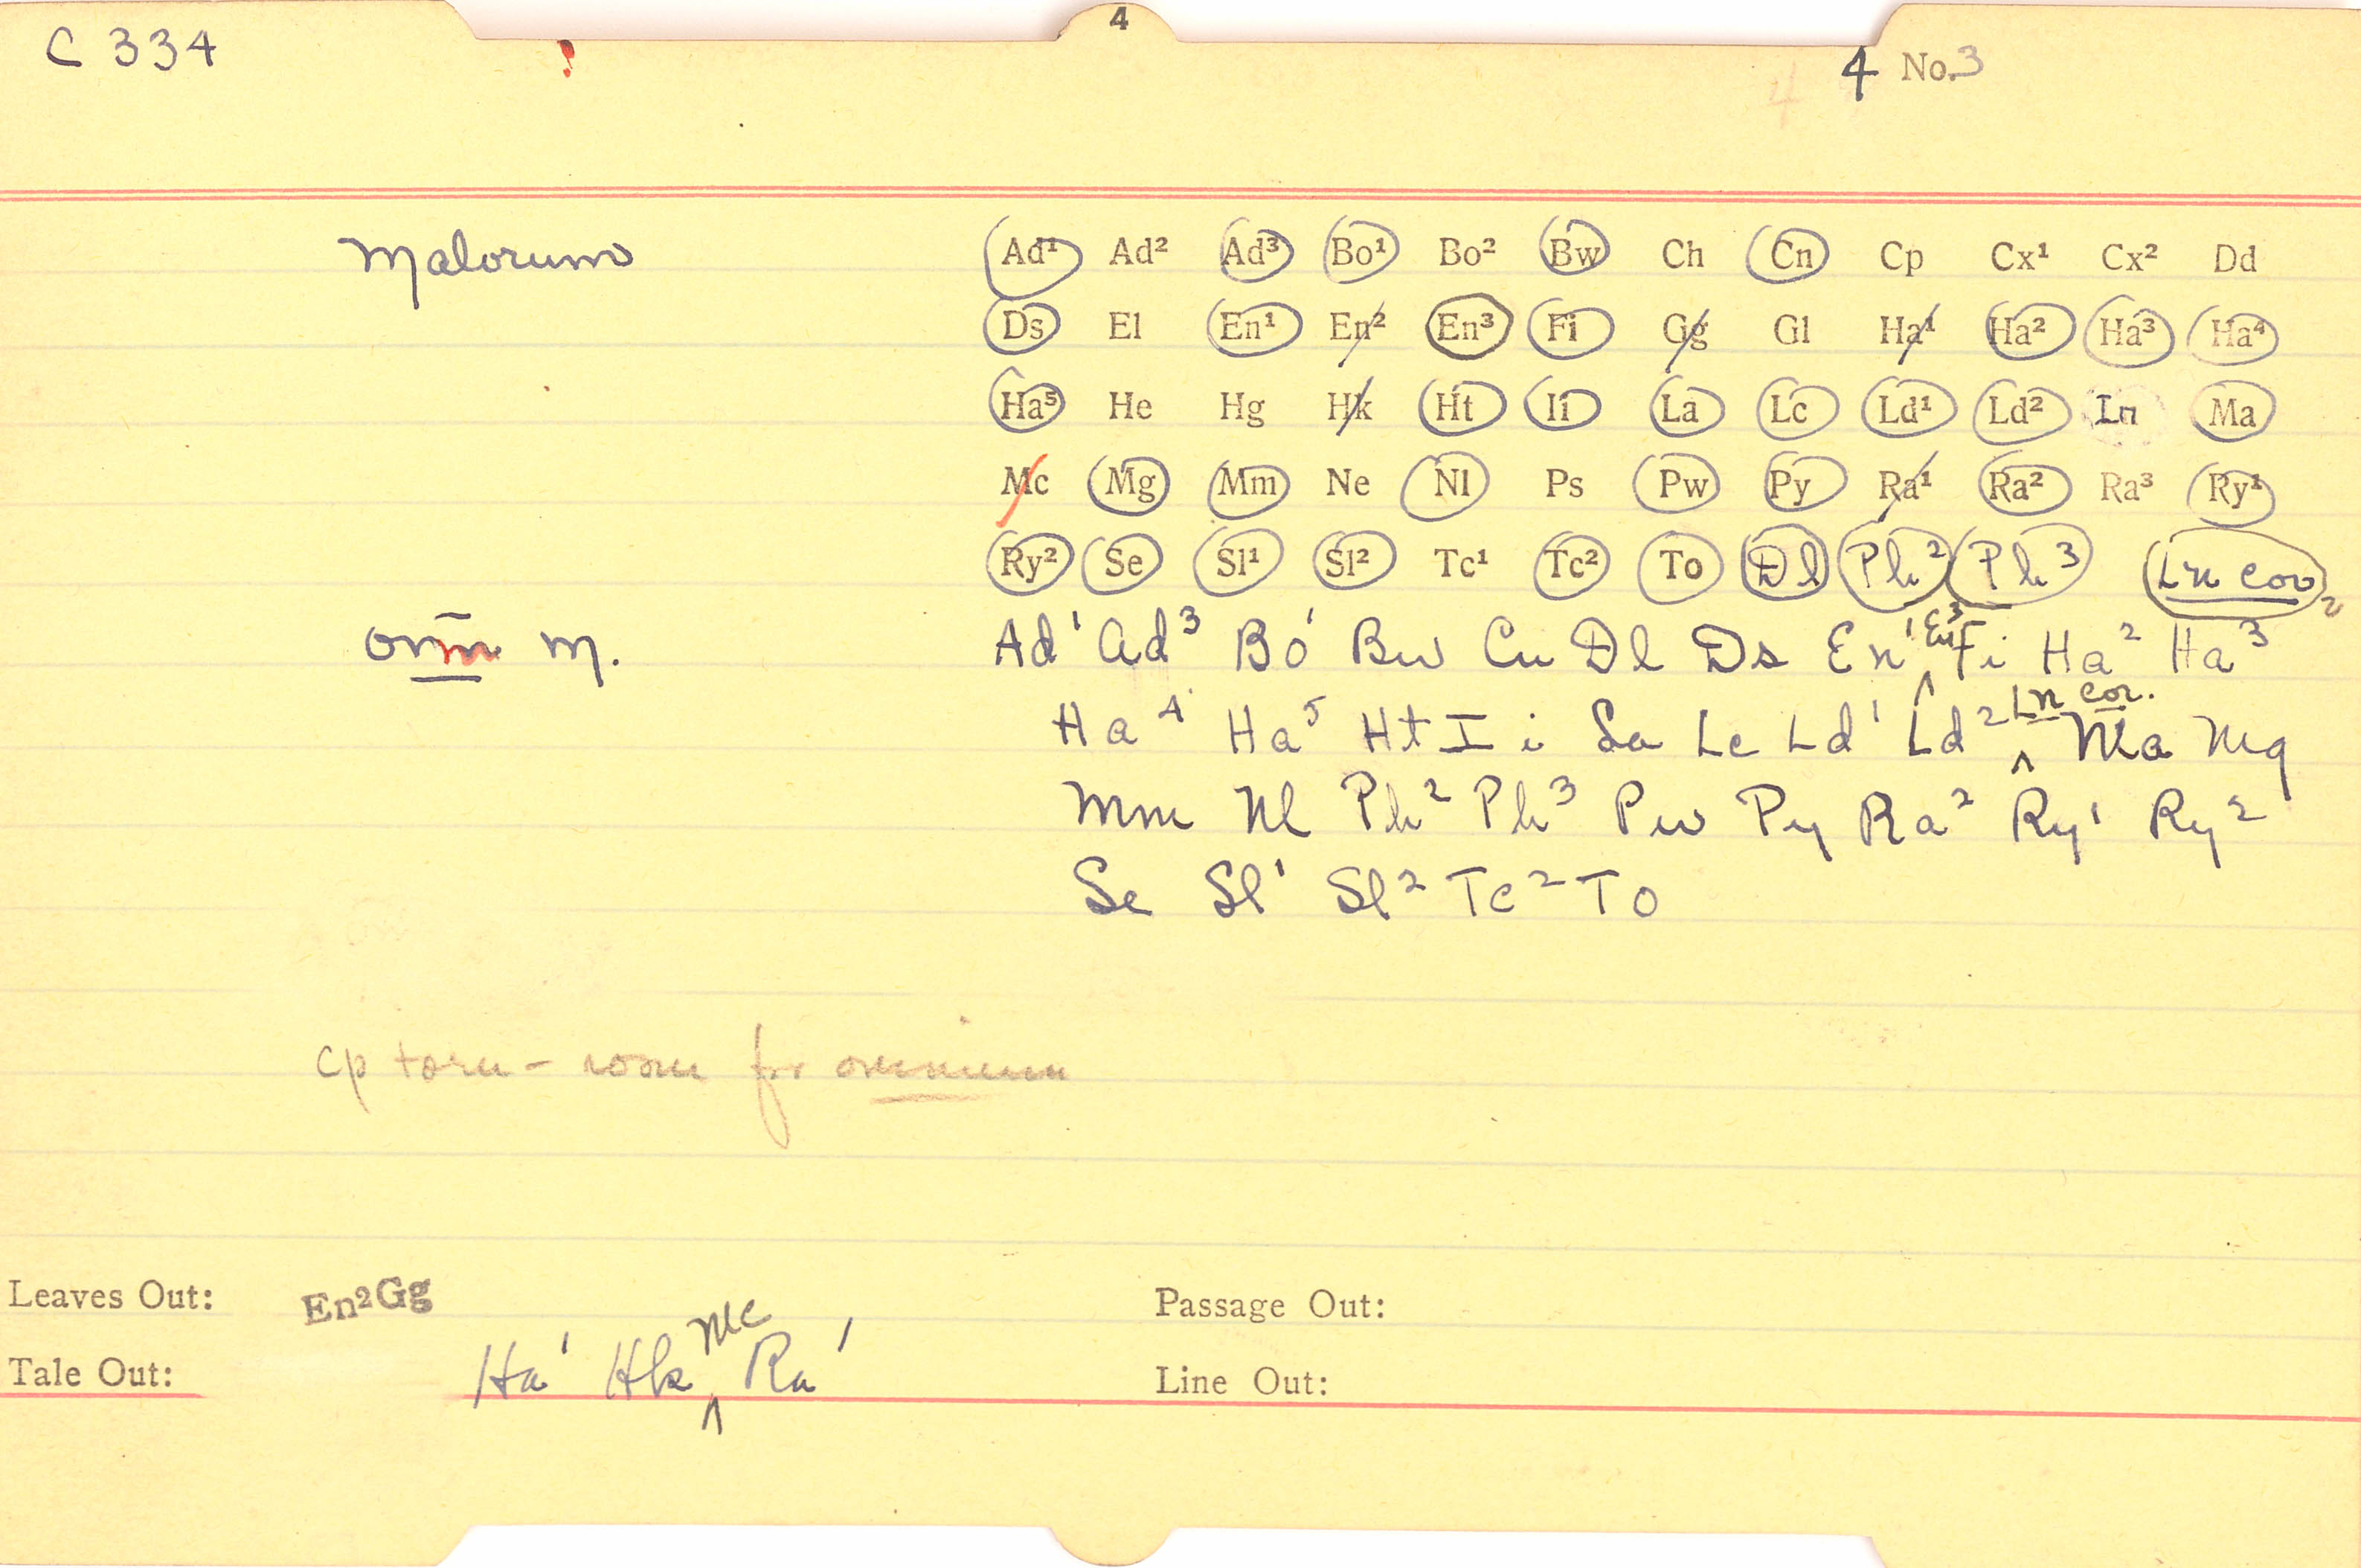 4
C 334
4 No. 3
Malorum Ad¹ Ad² Ad³ Bo¹ Bo² Bw Ch Cn Cp Cx¹ Cx² Dd
Ds El En¹ En² En³ Fi Gg Gl Ha¹ Ha² Ha³ Ha⁴
Ha⁵ He Hg Hk Ht Ii La Lc Ld¹ Ld² Ln Ma
Mc Mg Mm Ne Nl Ps Pw Py Ra¹ Ra² Ra³ Ry¹
Ry² Se Sl¹ Sl² Tc¹ Tc² To Dl Ph² Ph³ Ln cor 2
m. Ad¹ Ad³ Bo¹ Bw Cn Dl Ds En¹ En³ Fi Ha² Ha³
Ha⁴ Ha⁵ Ht Ii La Lc Ld¹ Ld² Ln cor. Ma Mg
Mm Nl Ph² Ph³ Pw Py Ra² Ry¹ Ry²
Se Sl¹ Sl² Tc² To
Cp torn – room for omnium
Leaves Out: En²Gg Passage Out:
Tale Out: Ha¹ Hk Mc Ra¹ Line Out: